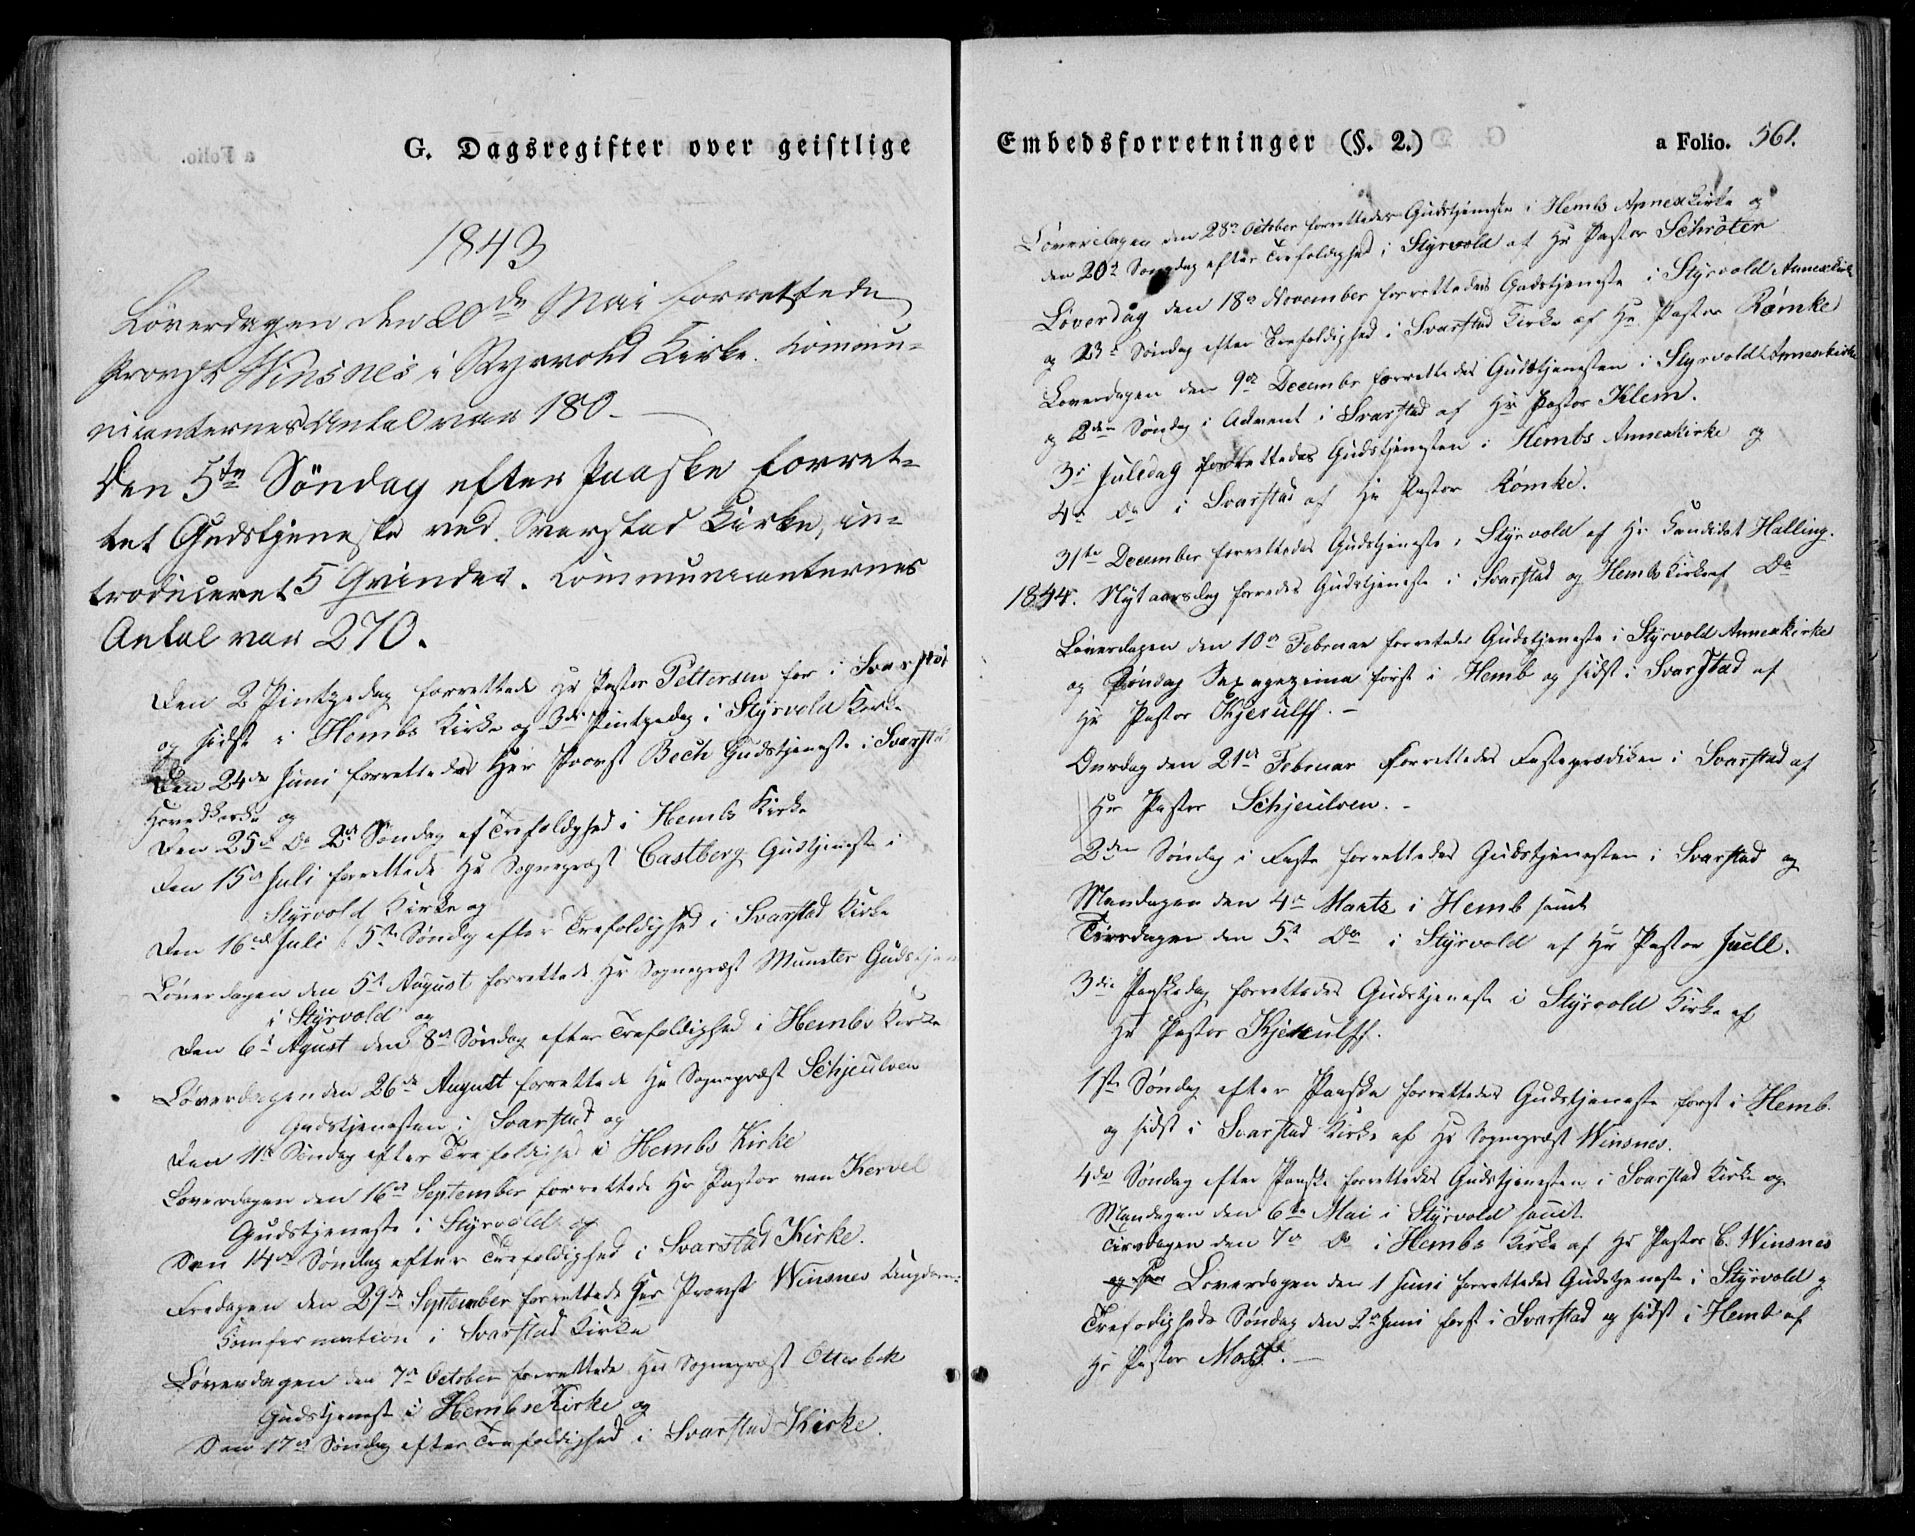 G. Dagsregister over geistlige
1843
Løverdagen den 20de Mai forrettede
Provst Winsnes i Styrvold Kirke. Commu-
nicanternes Antal var 180 -
Den 5te Søndag efter Paaske forret-
tet Gudstjeneste ved Svarstad Kirke, in-
troduceret 5 Qvinder. Communicanternes
Antal var 270.
Den 2 Pintzedag forrettede Hr Pastor Pettersen før i Svarstad
og sidst i Hembs Kirke og 3die Pintzedag i Styrvold Kirke
Den 24de Juni forrettedes Herr Provst Bech Gudstjeneste i Svarstad
Hovedkirke og
Den 25de Do 2den Søndag ef Trefoldighed i Hembs Kirke
Den 15de Juli forrettede Hr Sognepræst Castberg Gudstjeneste i
Styrvold Kirke og
Den 16de Juli 5te Søndag efter Trefoldighed i Svarstad Kirke
Løverdagen den 5te August forrettede Hr Sognepræst Munster
i Styrvold og
Den 6te Agust den 8de Søndag efter Trefoldighed i Hembs Kirke
Løverdagen den 26de August forrettede Hr Sognepræst Schjeulven
Gudstjenesten i Svarstad og
Den 11te Søndag efter Trefoldighed i Hembs Kirke
Løverdagen den 16de September forrettede Hr Pastor van Kervel
Gudstjeneste i Styrvold og
Den 14de Søndag efter Trefoldighed i Svarstad Kirke.
Fredagen den 29de September forrettede Herr Provst Winsnes Ungdom-
Comfermation i Svarstad Kirke
Løverdagen den 7de October forrettede Her Sognepræst Otterbek
Gudstjenest i Hembs Kirke og
Den 17de Søndag efter Trefoldighed i Svarstad Kirke.
Embedsforretninger (§. 2.) a Folio. 561.
Løverdagen den 28de October forrettedes Gudstjeneste i Hembs Annexkirke og
den 20de Søndag efter Trefoldighed i Styrvold af Hr Pastor Schrøter
Løverdag den 18de November forrettedes Gudstjeneste i Styrvold Annexkirke
og 23de Søndag efter Trefoldighed i Svarstad Kirke af Hr Pastor Rømke
Løverdagen den 9de Decembr forrettedes Gudstjenesten i Styrvold Annexkirke
og 2den Søndag i Advent i Svarstad af Hr Pastor Klem.
3die Juledag forrettedes Gudstjenesten i Hembs Annexkirke og
4de Do i Svarstad af Hr Pastor Rømke.
31te December forrettedes Gudstjeneste i Styrvold af Hr Candidat Halling.
1844. Nytaarsdag forredes Gudstjeneste i Svarstad og Hembs Kirke af Do
Løverdagen den 10de Februar forretedes Gudstjeneste i Styrvold Annexkirke
og Søndag Sexagezima først i Hemb og sidst i Svarstad af
Hr Pastor Kjerulff. -
Onsdag den 21de Februar forrettedes Fasteprædiken i Svarstad af
Hr Pastor Schjeulven. -
2den Søndag i Faste forrettedes Gudstjenesten i Svarstad og
Mandagen den 4de Marts i Hemb samt
Tirsdagen den 5te Do i Styrvold af Hr Pastor Juell.
3die Paaskedag forrettedes Gudstjeneste i Styrvold Kirke af
Hr Pastor Kjerulff.
1ste Søndag efter Paaske forrettedes Gudstjeneste først i Hemb
og sidst i Svarstad Kirke af Hr Sognepræst Winsnes.
4de Søndag efter Paaske forrettedes Gudstjenesten i Svarstad Kirke og
Mandagen den 6te Mai i Styrvold samt
Tirsdagen den 7de Do i Hembs Kirke af Hr Pastor C. Winsnes
Løverdagen den 1 Juni forrettedes Gudstjeneste i Styrvold og
Trefodigheds Søndag den 2den Juni først i Svarstad og sidst i Hemb af
Hr Pastor